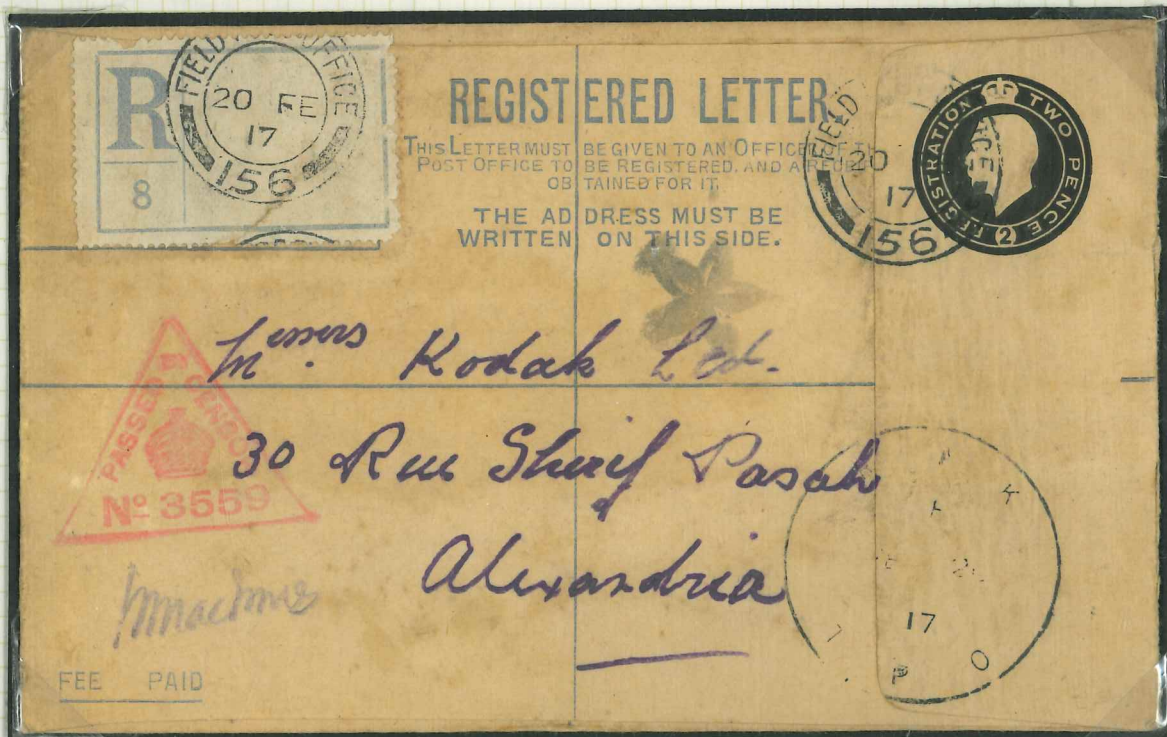 R
8
FIELD POST OFFICE
20 FE
17
156
REGISTERED LETTER.
THIS LETTER MUST BE GIVEN TO AN OFFICER OF THE
POST OFFICE TO BE REGISTERED, AND A RECEIPT
OBTAINED FOR IT.
THE ADDRESS MUST BE
WRITTEN ON THIS SIDE.
FIELD
20
17
156
REGISTRATION TWO PENCE
(2)
Messrs Kodak Ltd.
30 Rue Sherif Pasah
Alexandria
PASSED BY CENSOR
No 3559
17
P O
FEE PAID